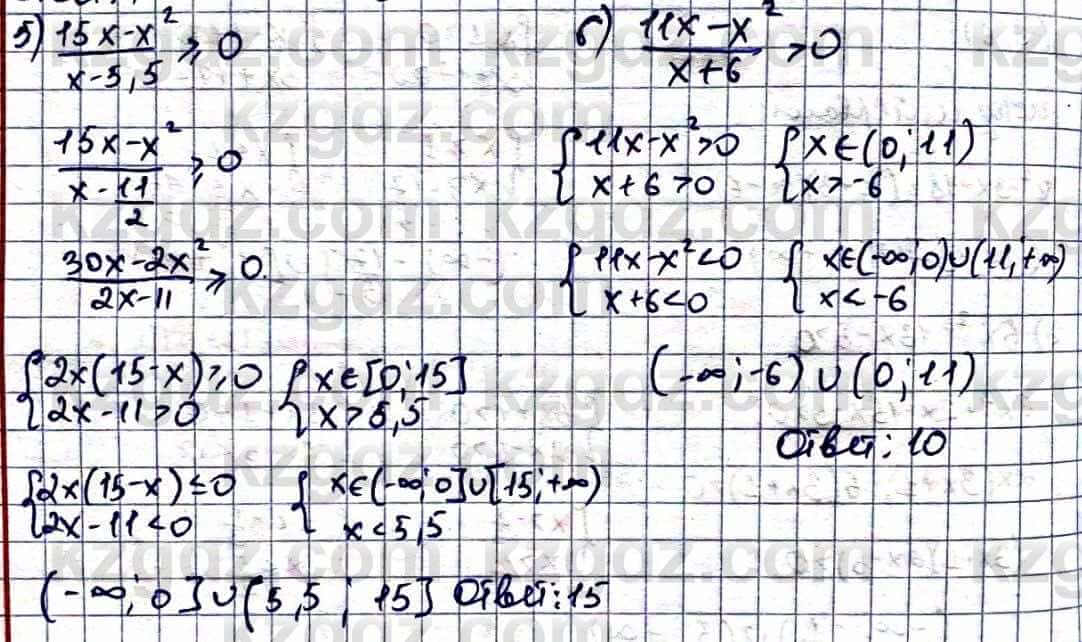 5) (15x-x²)/(x-5,5) ≥ 0
(15x-x²)/(x-11/2) ≥ 0
(30x-2x²)/(2x-11) ≥ 0
{2x(15-x)≥0 {x∈[0;15]
{2x-11>0 {x>5,5
{2x(15-x)≤0 {x∈(-∞;0]∪[15;+∞)
{2x-11<0 {x<5,5
(-∞;0]∪(5,5; 15] Ответ:15
б) (11x-x²)/(x+6) >0
{11x-x²>0 {x∈(0;11)
{x+6>0 {x>-6
{11x-x²<0 {x∈(-∞;0)∪(11;+∞)
{x+6<0 {x<-6
(-∞;-6)∪(0;11)
Ответ: 10
kzgdz.com